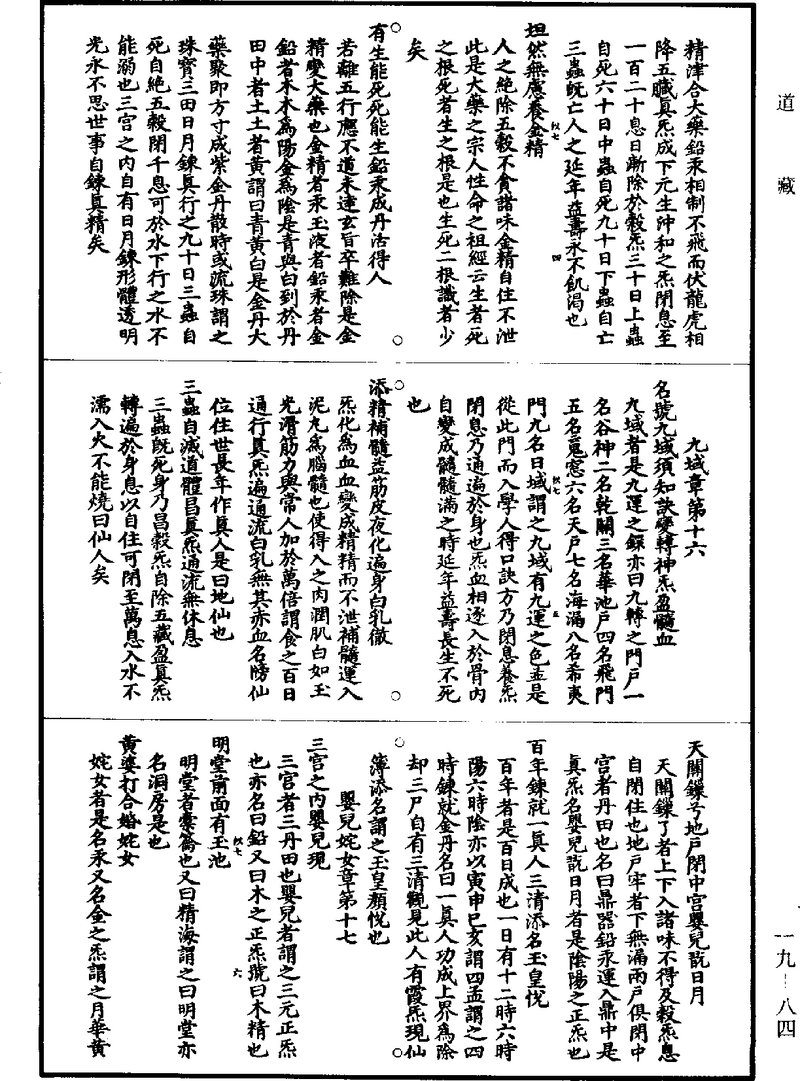 道藏
精津合大藥鉛汞相制不飛而伏龍虎相
降五臟真炁成下元生沖和之炁閉息至
一百二十息日漸除於穀炁三十日上蟲
自死六十日中蟲自死九十日下蟲自亡
三蟲既亡人之延年益壽永不飢渴也
坦然無慮養金精
人之絶除五穀不貪諸味金精自住不泄
此是大藥之宗人性命之祖經云生者死
之根死者生之根是也生死二根識者少
矣
有生能死死能生鉛汞成丹活得人
若離五行應不道未達玄旨卒難除是金
精變大藥也金精者汞玉液者鉛汞者金
鉛者木木為陽金為陰是青與白到於丹
田中者土土者黃謂曰青黃白是金丹大
藥聚即方寸成紫金丹散時或流珠謂之
珠寶三田日月鍊真行之九十日三蟲自
死自絶五穀閉千息可於水下行之水不
能溺也三宮之内自有日月鍊形體透明
光永不思世事自鍊真精矣
九域章第十六
名號九域須知訣變轉神炁盈髓血
九域者是九運之鏁亦曰九轉之門戶一
名谷神二名乾關三名華池戶四名飛門
五名鬼窓六名天戶七名海漏八名希夷
門九名曰域謂之九域有九運之色盡是
從此門而入學人得口訣方乃閉息養炁
閉息乃通遍於身也炁血相逐入於骨内
自變成髓髓滿之時延年益壽長生不死
也
添精補髓益筋皮夜化遍身白乳徹
炁化為血血變成精精而不泄補髓運入
泥丸為腦髓也使得人之肉潤肌白如玉
光滑筋力與常人加於萬倍謂食之百日
通行真炁遍通流白乳無其赤血名牓仙
位住世長年作真人是曰地仙也
三蟲自滅道體昌真炁通流無休息
三蟲既死身乃昌穀炁自除五藏盈真炁
轉遍於身息以自住可閉至萬息入水不
濡入火不能燒曰仙人矣
天關鏁兮地戶閉中宮嬰兒翫日月
天關鏁了者上下入諸味不得及穀炁息
自閉住也地戶牢者下無漏兩戶俱閉中
宮者丹田也名曰鼎器鉛汞運入鼎中是
真炁名嬰兒翫日月者是陰陽之正炁也
百年鍊就一真人三清添名玉皇悅
百年者是百日成也一日有十二時六時
陽六時陰亦以寅申巳亥謂四孟謂之四
時鍊就金丹名曰一真人功成上界為除
却三尸自有三清觀見此人有霞炁現仙
簿添名謂之玉皇顏悅也
嬰兒姹女章第十七
三宮之内嬰兒現
三宮者三丹田也嬰兒者謂之三元正炁
也亦名曰鉛又曰木之正炁號曰木精也
明堂前面有玉池
明堂者橐籥也又曰精海謂之曰明堂亦
名洞房是也
黃婆打合婚姹女
姹女者是名汞又名金之炁謂之月華黃
一九－八四